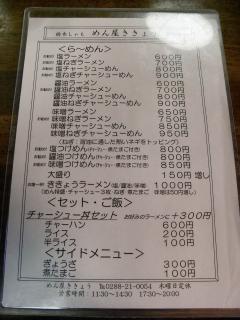 めん屋ききょう
<ら～めん>
塩ラーメン 600円
塩ねぎラーメン 700円
塩チャーシューメン 800円
塩ねぎチャーシューめん 900円
醤油ラーメン
醤油ねぎラーメン 700円
醤油チャーシューめん 800円
醤油ねぎチャーシューめん 900円
味噌ラーメン 650円
味噌ねぎラーメン 750円
味噌チャーシューめん 850円
味噌ねぎチャーシューめん 950円
塩つけめん 800円
醤油つけめん 800円
味噌つけめん 850円
大盛り 150円増し
ききょうラーメン(塩/醤油/味噌) 1000円
<セット・ご飯>
チャーシュー丼セット お好みのラーメンに+300円
チャーハン 600円
ライス 200円
半ライス 100円
<サイドメニュー>
ぎょうざ 300円
煮たまご 100円
めん屋ききょう ℡0288-21-0054 木曜日定休
営業時間:11:30～14:30 17:30～20:00